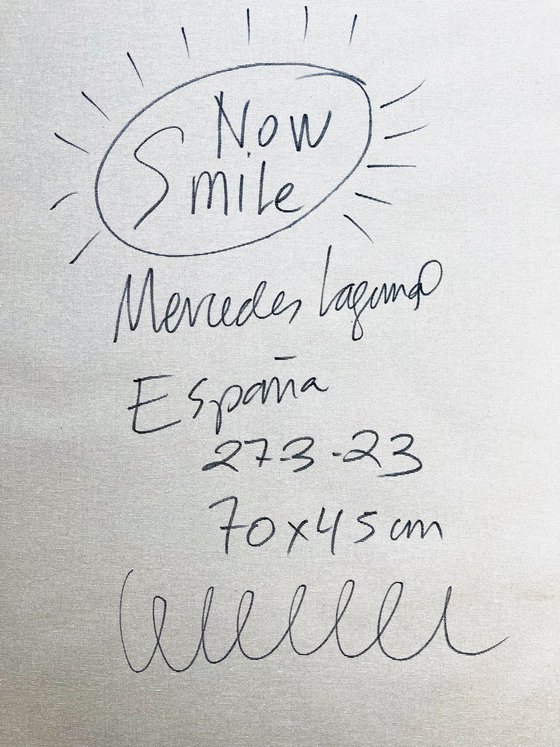 Now
Smile
Mercedes Laguna
España
27-3-23
70x45 cm